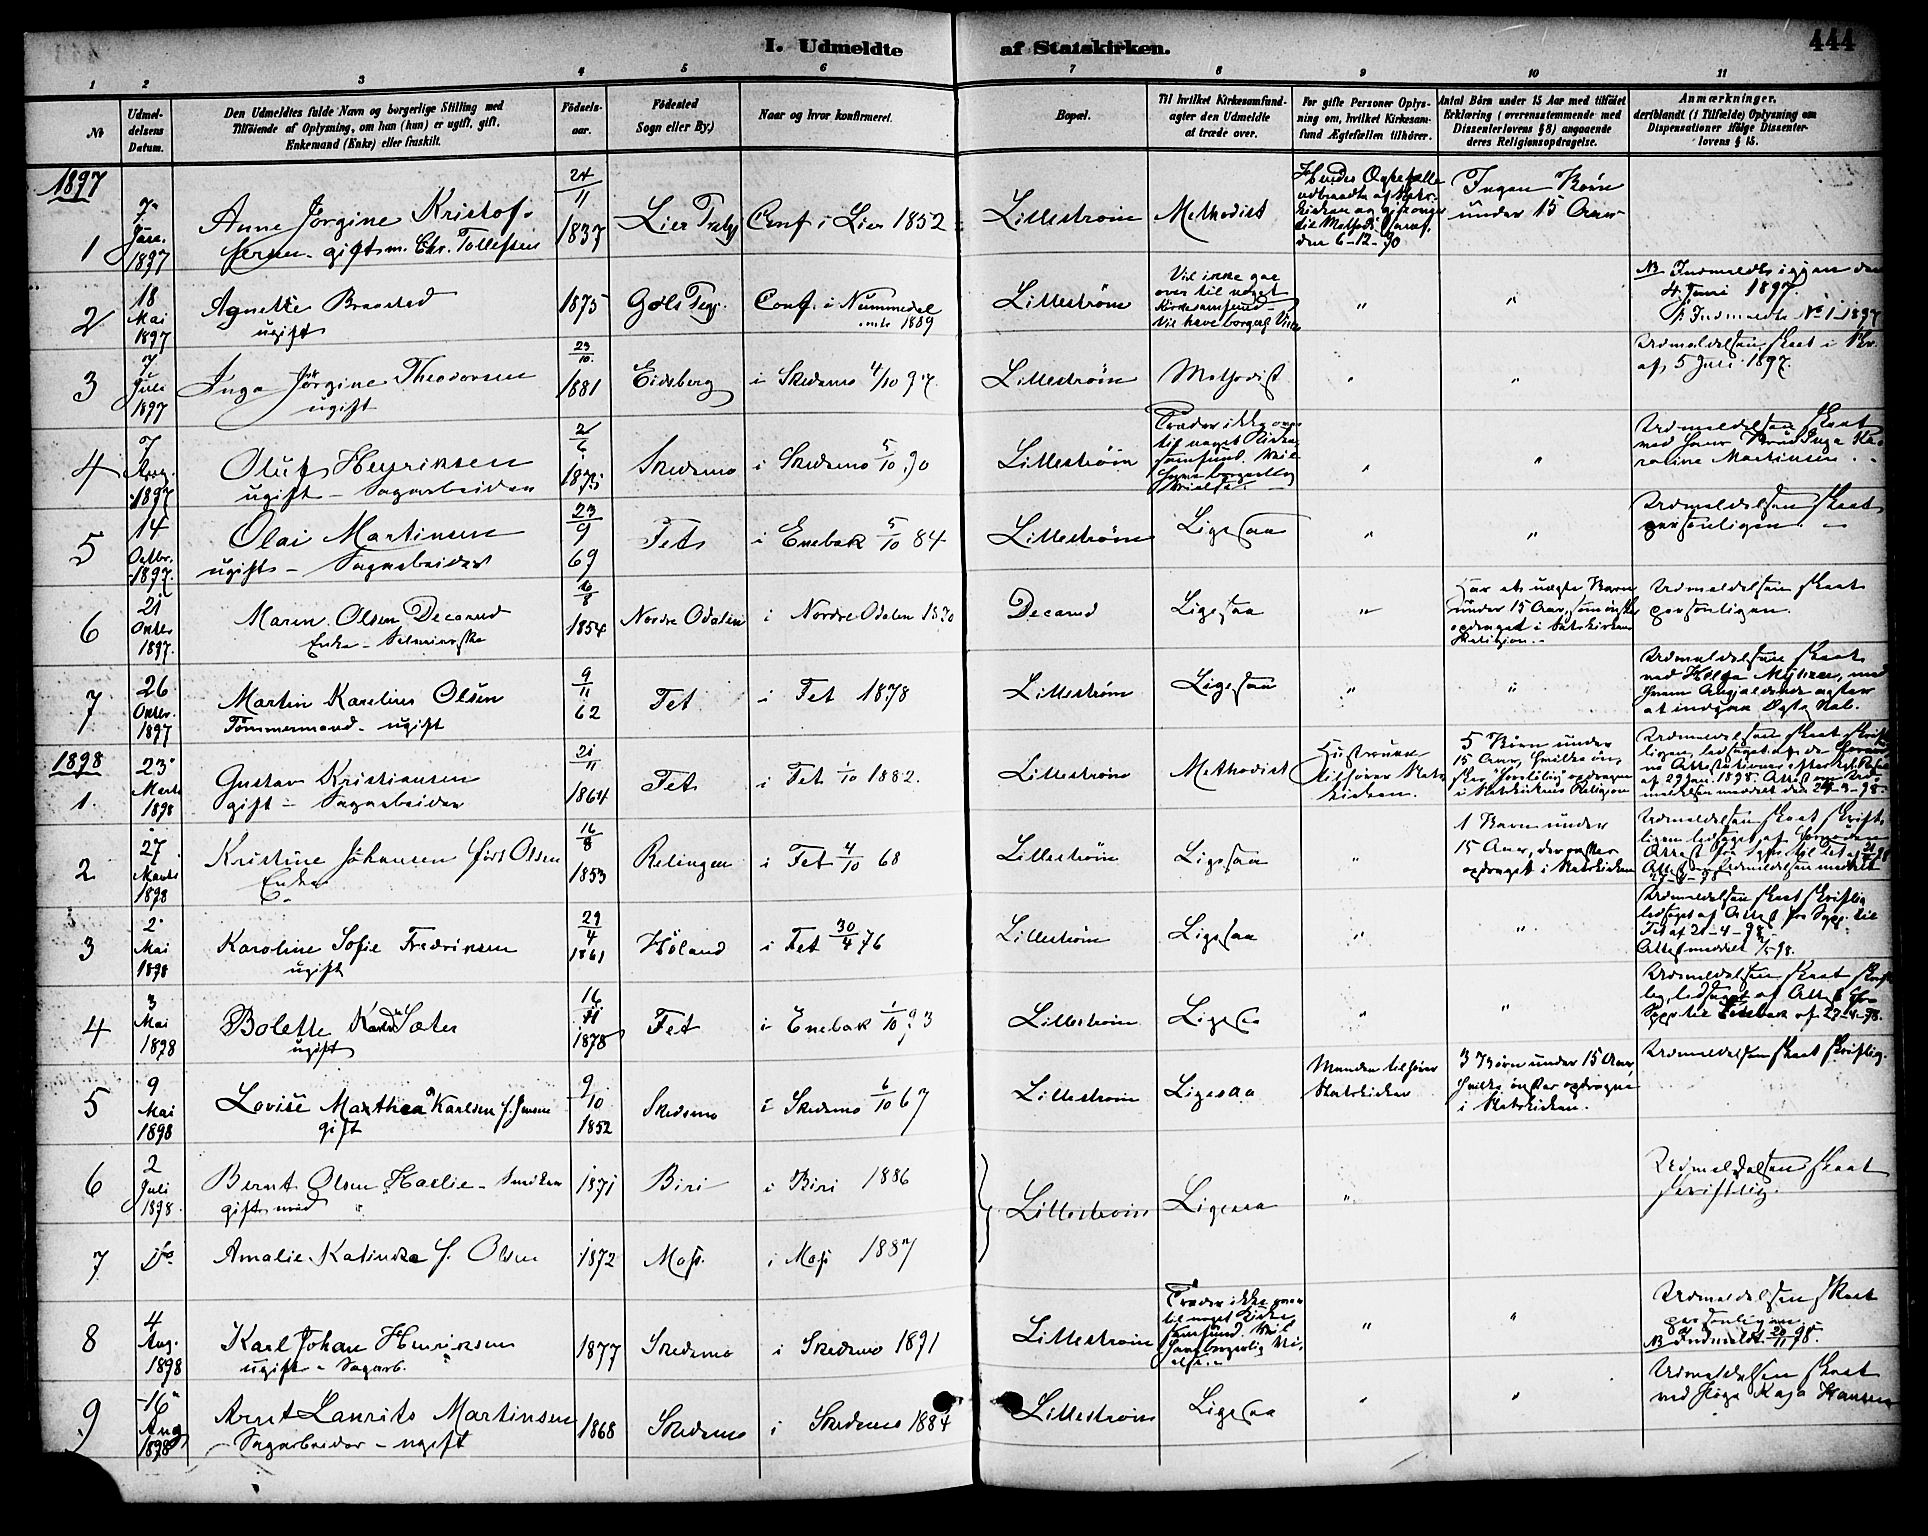 I. Udmeldte af Statskirken. 444
1 2 3 4 5 6 7 8 9 10 11
No
Udmel-
delsens
Datum.
Den Udmeldtes fulde Navn og borgerlige Stilling med
Tilføiende af Oplysning, om han (hun) er ugift, gift,
Enkemand (Enke) eller fraskilt.
Fødsels-
aar.
Fødested
Sogn eller By.)
Naar og hvor konfirmeret.
Bopæl.
Til hvilket Kirkesamfund-
agter den Udmeldte
at træde over.
For gifte Personer Oplys-
ning om, hvilket Kirkesam-
fund Ægtefællen tilhører.
Antal Børn under 15 Aar med tilføiet
Erklæring (overensstemmende med
Dissenterlovens § 8) angaaende
deres Religionsopdragelse.
Anmærkninger,
deriblandt (i Tilfælde) Oplysning om
Dispensationer ifølge Dissenter-
lovens § 15.
1897
1
7
1897
Anne Jørgine Kristof-
fersen - gift m. Chr. Tollefsen
24/11
1837
Lier
Conf. i Lier 1852
Lillestrøm
Methodist
den 6-12-90
Ingen Børn
under 15 Aar
2
18
Mai
1897
Agnette
ugift
1875
Conf. i Nummedal
1889
Lillestrøm
Vil ikke gaa
over til noget
Kirkesamfund -
Vil have borgerl. Vielse
"
"
NB Indmeldt igjen den
4 Juni 1897.
Indmeldte No 1 1897
3
7
Juli
1897
Inga Jørgine Theodorsen
ugift
23/10
1881
Eidsberg
i Skedsmo 4/10 97.
Lillestrøm
Methodist
"
"
Udmeldelsen skeet i Br.
af 5 Juli 1897.
4
7
Aug.
1897
Oluf Henriksen
ugift - Sagarbeider
2/6
1875
Skedsmo
i Skedsmo 5/10 90
Lillestrøm
Træder ikke over
til noget Kirke-
samfund. Vil
have borgerlig
Vielse.
"
"
Udmeldelsen skeet
med hans Brud Inga Ka-
roline Martinsen.
5
14
Octbr.
1897.
Olai Martinsen
ugift - Sagarbeider
23/9
69
Fet
i Enebak 5/10 84
Lillestrøm
Ligesaa
"
"
Udmeldelsen skeet
personligen.
6
21
Octbr
1897.
Maren Olsen Decarud
Enke -
10/8
1854
Nordre Odalen
i Nordre Odalen 1870
Decarud
Ligesaa
"
Har et uægte Barn
under 15 Aar, som ønskes
opdraget i Statskirkens
Religion.
Udmeldelsen skeet
personligen.
7
26
Octbr.
1897
Martin Karelius Olsen
Tømmermand - ugift
9/11
62
Fet
i Fet 1878
Lillestrøm
Ligesaa
"
"
Udmeldelsen skeet
med
hvem Angjældende agter
at indgaa Ægteskab.
1898
1.
23
Marts
1898
Gustav Kristiansen
gift - Sagarbeider
21/11
1864
Fet
i Fet 1/10 1882.
Lillestrøm
Methodist
Hustruen
tilhører Stats-
kirken.
5 Børn under
15 Aar, hvilke øn-
skes opdragne
i Statskirkens Religion
Udmeldelsen skeet skrift-
af 29 Jan. 1898. Attest om Ud-
meldelsen meddelt den 24-3-98.
2
27
Marts
1898
Kristine Johansen født Olsen
Enke
16/8
1853
Relingen
i Fet 4/10 68
Lillestrøm
Ligesaa
"
1 Barn under
15 Aar, der ønskes
opdraget i Statskirken
Udmeldelsen skeet skrift-
ligen ledsaget af fornøden
Attest fra Sgpr. til Fet
3
2
Mai
1898
Karoline Sofie Fredriksen
ugift
29/4
1861
Høland
i Fet 30/4 76
Lillestrøm
Ligesaa
"
"
Udmeldelsen skeet skriftlig
ledsaget af Attest fra Sgpr. til
Fet af 21-4-98.
Attest meddelt 2/5-98.
4
3
Mai
1898
Bolette Sæter
ugift
16/11
1878
Fet
i Enebak 1/10 93
Lillestrøm
Ligesaa
"
"
Udmeldelsen skeet skrift-
lig, ledsaget af Attest fra
Sgpr. til Enebak af 27-4-98.
5
9
Mai
1898
Lovise Marthea Karlsen f. Jensen
gift
9/10
1852
Skedsmo
i Skedsmo 6/10 67
Lillestrøm
Ligesaa
Manden tilhører
Statskirken
3 Børn under 15 Aar,
hvilke ønskes opdragne
i Statskirken.
Udmeldelsen skeet skriftlig.
6
2
Juli
1898
Bernt Olsen Hælie - Snedker
gift med
1871
Biri
i Biri 1886
Lillestrøm
Ligesaa
"
Udmeldelsen skeet
skriftlig.
7
do
Amalie Katinka f. Olsen
1872
Moss.
i Moss 1887
8
4
Aug.
1898
Karl Johan Henriksen
ugift - Sagarb.
1877
Skedsmo
i Skedsmo 1891
Lillestrøm
Træder ikke over
til noget Kirke-
samfund. Vil
have borgerlig Vi-
else.
"
"
Udmeldelsen skeet
personligen.
NB Indmeldt 98.
9
16
Aug
1898
Arnt Laurits Martinsen
Sagarbeider - ugift
1868
Skedsmo
i Skedsmo 1884
Lillestrøm
Ligesaa
"
"
Udmeldelsen skeet
med Pige Kaja Hansen